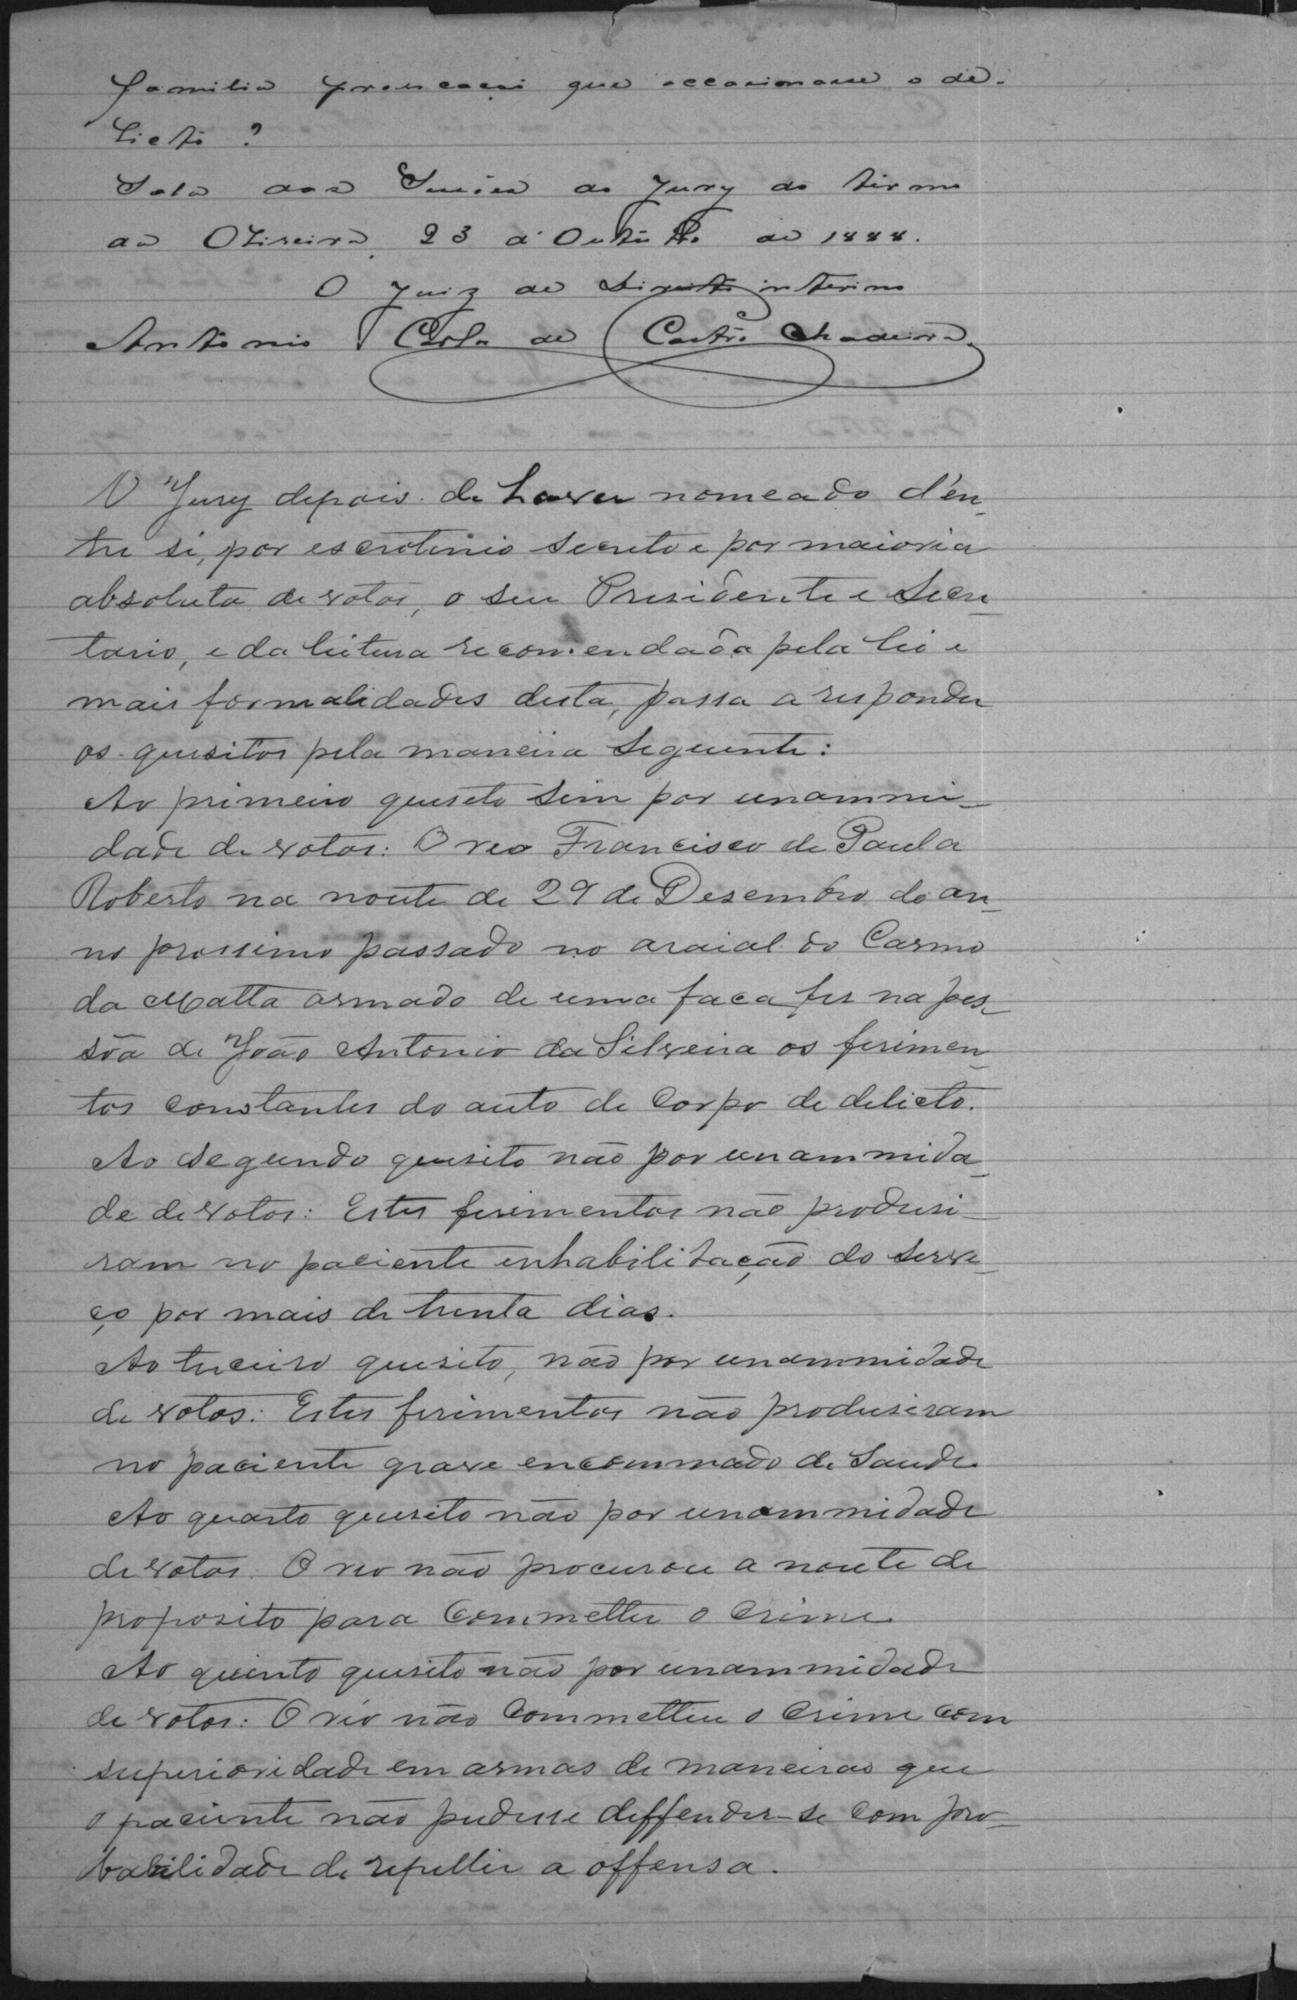 familia provocação que occasionasse o de-
licto?
Sala das Sessões do Jury do termo
da Oliveira, 23 d'Outubro de 1888.
O Juiz de Direito interino
Antonio Carlos de Castro Madeira.
O Jury depois de haver nomeado d'en-
tre si, por escrotinio secreto e por maioria
absoluta de votos, o seu Presidente e Secre-
tario, e da leitura recomendada pela lei e
mais formalidades desta, passa a responder
os quesitos pela maneira seguente:
Ao primeiro quesito sim por unanimi-
dade de votos: O reo Francisco de Paula
Roberto na noute de 29 de Desembro do an-
no prossimo passado no araial do Carmo
da Matta armado de uma faca fes na pes-
sôa de João Antonio da Silveira os ferimen-
tos constantes do auto de corpo de delicto.
Ao segundo quesito não por unanimida-
de de votos: Estes ferimentos não produsi-
ram no paciente enhabilitação do serve-
ço por mais de trenta dias.
Ao treceiro quesito, não por unanimidade
de votos: Estes ferimentos não produsiram
no paciente grave encommado de Saude.
Ao quarto quesito não por unanimidade
de votos: O reo não procurou a noute de
proposito para commetter o crime.
Ao quinto quesito não por unanimidade
de votos: O réo não commetteu o crime com
superioridade em armas de maneiras que
o paciente não pudesse deffender-se com pro-
babilidade de repellir a offensa.